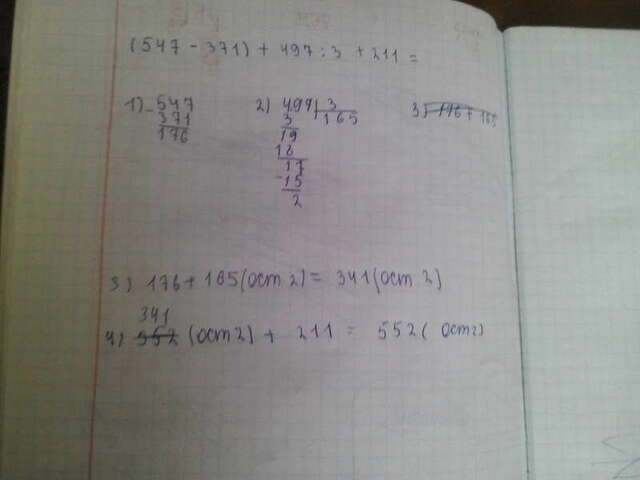 (547 - 371) + 497 : 3 + 211 =
1) - 547 2) 497 | 3 3) 176 + 165
371 3 165
176 19
18
17
- 15
2
3) 176 + 165 (ост 2) = 341 (ост 2)
341
4) 552 (ост 2) + 211 = 552 (ост 2)